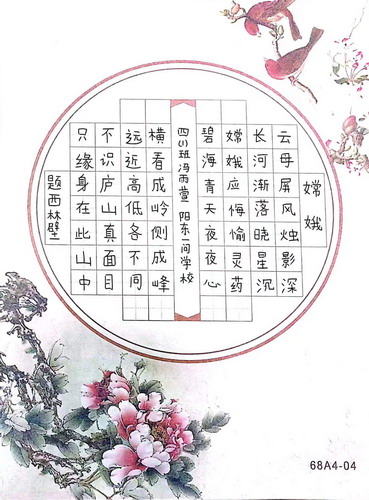 嫦娥
云母屏风烛影深
长河渐落晓星沉
嫦娥应悔愉灵药
碧海青天夜夜心
四(1)班冯雨萱 阳东一问学校
横看成岭侧成峰
远近高低各不同
不识庐山真面目
只缘身在此山中
题西林壁
68A4-04